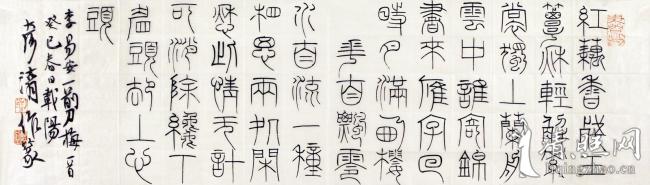 紅藕香殘玉
簟秋輕解羅
裳獨上蘭舟
雲中誰寄錦
書來雁字回
時月滿西樓
華自飄零
水自流一種
相思兩処閑
愁此情无計
可消除纔下
眉頭却上心
頭
李易安一剪梅一首
癸巳春日載陽
清作篆